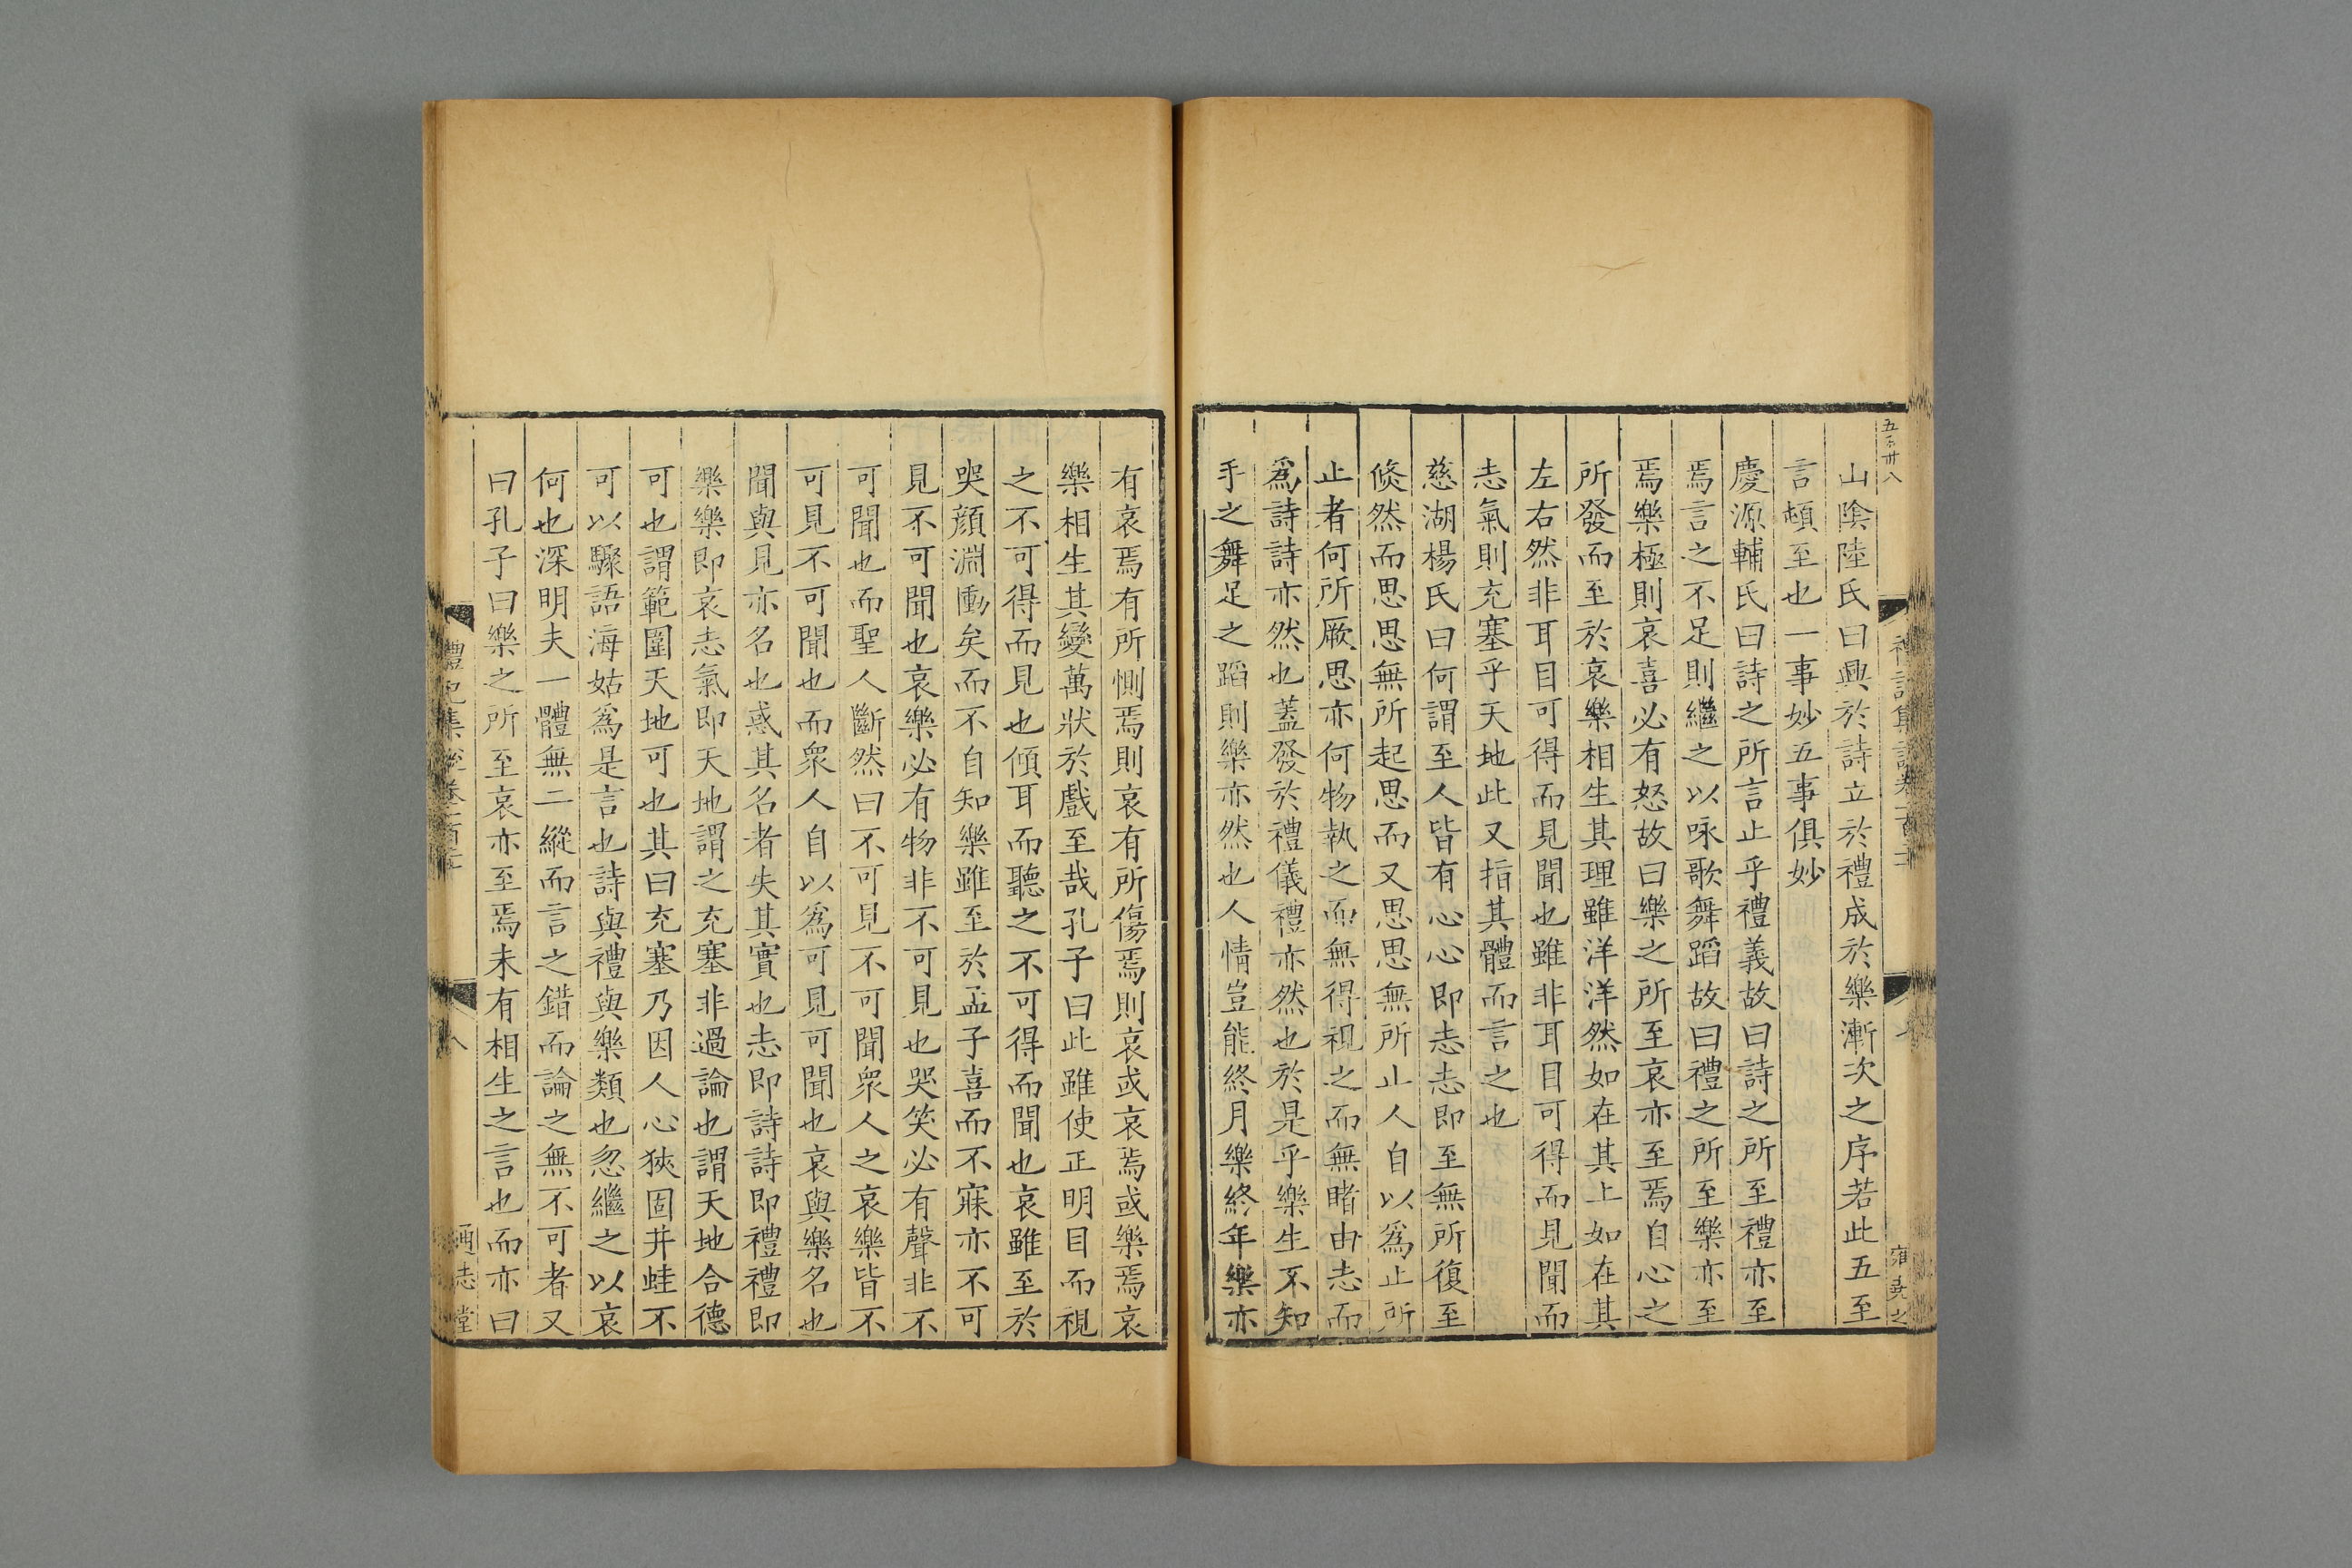 五百卅八
山陰陸氏曰興於詩立於禮成於樂漸次之序若此五至
言頓至也一事妙五事俱妙
慶源輔氏曰詩之所言止乎禮義故曰詩之所至禮亦至
焉言之不足則繼之以咏歌舞蹈故曰禮之所至樂亦至
焉樂極則哀喜必有怒故曰樂之所至哀亦至焉自心之
所發而至於哀樂相生其理雖洋洋然如在其上如在其
左右然非耳目可得而見聞也雖非耳目可得而見聞而
志氣則充塞乎天地此又指其體而言之也
慈湖楊氏曰何謂至人皆有心心即志志即至無所復至
倐然而思思無所起思而又思思無所止人自以爲止所
止者何所厥思亦何物執之而無得視之而無睹由志而
爲詩詩亦然也蓋發於禮儀禮亦然也於是乎樂生不知
手之舞足之蹈則樂亦然也人情豈能終月樂終年樂亦
有哀焉有所惻焉則哀有所傷焉則哀或哀焉或樂焉哀
樂相生其變萬狀於戲至哉孔子曰此雖使正明目而視
之不可得而見也傾耳而聽之不可得而聞也哀雖至於
哭顔淵慟矣而不自知樂雖至於孟子喜而不寐亦不可
見不可聞也哀樂必有物非不可見也哭笑必有聲非不
可聞也而聖人斷然曰不可見不可聞衆人之哀樂皆不
可見不可聞也而衆人自以爲可見可聞也哀與樂名也
聞與見亦名也惑其名者失其實也志即詩詩即禮禮即
樂樂即哀志氣即天地謂之充塞非過論也謂天地合德
可也謂範圍天地可也其曰充塞乃因人心狹固井蛙不
可以驟語海姑爲是言也詩與禮與樂類也忽繼之以哀
何也深明夫一體無二縱而言之錯而論之無不可者又
曰孔子曰樂之所至哀亦至焉未有相生之言也而亦曰
八
通志堂